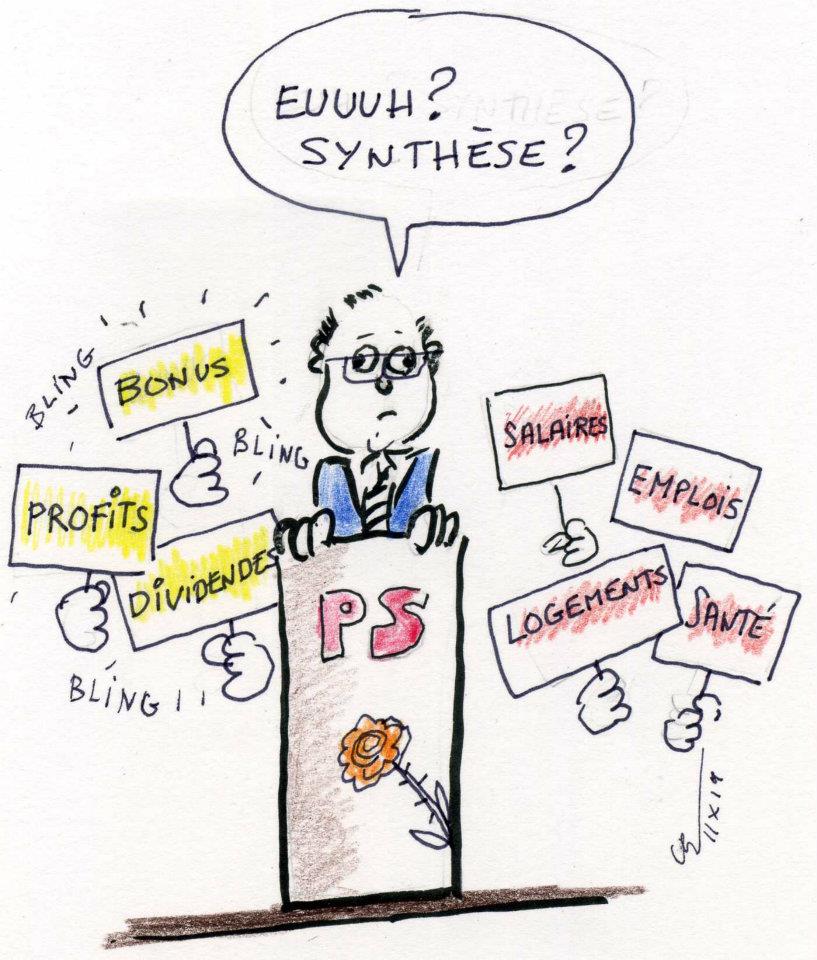 EUUUH?
SYNTHÈSE?
BLING
BONUS
BLING
PROFITS
DIVIDENDES
BLING!!
SALAIRES
EMPLOIS
LOGEMENTS
SANTÉ
PS